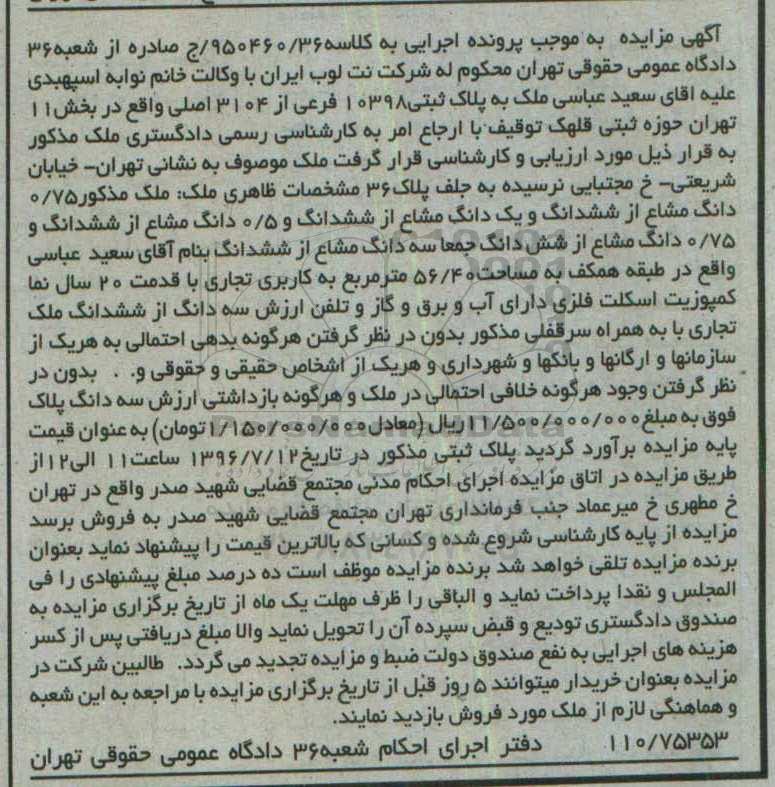 آگهی مزایده به موجب پرونده اجرایی به کلاسه۹۵۰۴۶۰/۳۶/ج صادره از شعبه۳۶
دادگاه عمومی حقوقی تهران محکوم له شرکت نت لوب ایران با وکالت خانم نوابه اسپهبدی
علیه اقای سعید عباسی ملک به پلاک ثبتی۱۰۳۹۸ فرعی از ۳۱۰۴ اصلی واقع در بخش۱۱
تهران حوزه ثبتی قلهک توقیف با ارجاع امر به کارشناسی رسمی دادگستری ملک مذکور
به قرار ذیل مورد ارزیابی و کارشناسی قرار گرفت ملک موصوف به نشانی تهران– خیابان
شریعتی– خ مجتبایی نرسیده به جلف پلاک۳۶ مشخصات ظاهری ملک: ملک مذکور۰/۷۵
دانگ مشاع از ششدانگ و یک دانگ مشاع از ششدانگ و ۰/۵ دانگ مشاع از ششدانگ و
۰/۷۵ دانگ مشاع از شش دانگ جمعا سه دانگ مشاع از ششدانگ بنام آقای سعید عباسی
واقع در طبقه همکف به مساحت۵۶/۴۰ مترمربع به کاربری تجاری با قدمت ۲۰ سال نما
کمپوزیت اسکلت فلزی دارای آب و برق و گاز و تلفن ارزش سه دانگ از ششدانگ ملک
تجاری با به همراه سرقفلی مذکور بدون در نظر گرفتن هرگونه بدهی احتمالی به هریک از
سازمانها و ارگانها و بانکها و شهرداری و هریک از اشخاص حقیقی و حقوقی و. . بدون در
نظر گرفتن وجود هرگونه خلافی احتمالی در ملک و هرگونه بازداشتی ارزش سه دانگ پلاک
فوق به مبلغ۱۱/۵۰۰/۰۰۰/۰۰۰ریال (معادل۱/۱۵۰/۰۰۰/۰۰۰تومان) به عنوان قیمت
پایه مزایده برآورد گردید پلاک ثبتی مذکور در تاریخ۱۳۹۶/۷/۱۲ ساعت۱۱ الی۱۲از
طریق مزایده در اتاق مزایده اجرای احکام مدنی مجتمع قضایی شهید صدر واقع در تهران
خ مطهری خ میرعماد جنب فرمانداری تهران مجتمع قضایی شهید صدر به فروش برسد
مزایده از پایه کارشناسی شروع شده و کسانی که بالاترین قیمت را پیشنهاد نماید بعنوان
برنده مزایده تلقی خواهد شد برنده مزایده موظف است ده درصد مبلغ پیشنهادی را فی
المجلس و نقدا پرداخت نماید و الباقی را ظرف مهلت یک ماه از تاریخ برگزاری مزایده به
صندوق دادگستری تودیع و قبض سپرده آن را تحویل نماید والا مبلغ دریافتی پس از کسر
هزینه های اجرایی به نفع صندوق دولت ضبط و مزایده تجدید می گردد. طالبین شرکت در
مزایده بعنوان خریدار میتوانند ۵ روز قبل از تاریخ برگزاری مزایده با مراجعه به این شعبه
و هماهنگی لازم از ملک مورد فروش بازدید نمایند.
۱۱۰/۷۵۳۵۳ دفتر اجرای احکام شعبه۳۶ دادگاه عمومی حقوقی تهران